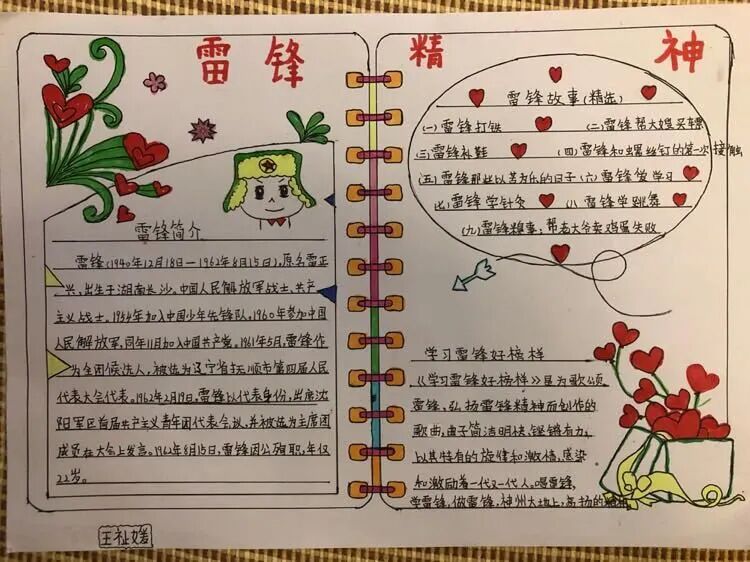 雷锋精神
雷锋简介
雷锋(1940年12月18日—1962年8月15日),原名雷正
兴,出生于湖南长沙,中国人民解放军战士、共产
主义战士。1954年加入中国少年先锋队,1960年参加中国
人民解放军,同年11月加入中国共产党。1961年5月,雷锋作
为全团候选人,被选为辽宁省抚顺市第四届人民
代表大会代表。1962年2月19日,雷锋以代表身份,出席沈
阳军区首届共产主义青年团代表会议,并被选为主席团
成员在大会上发言。1962年8月15日,雷锋因公殉职,年仅
22岁。
王祉媛
雷锋故事(精选)
(一)雷锋打铁 (二)雷锋帮大嫂买车票
(三)雷锋补鞋 (四)雷锋和螺丝钉的第一次接触
(五)雷锋那些以苦为乐的日子(六)雷锋做学习
(七)雷锋学针灸 (八)雷锋学跳舞
(九)雷锋糗事:帮老大爷卖鸡蛋失败
学习雷锋好榜样
《学习雷锋好榜样》是为歌颂
雷锋,弘扬雷锋精神而创作的
歌曲,由于简洁明快、铿锵有力,
以其特有的旋律和激情,感染
和激励着一代又一代人。唱雷锋,
学雷锋,做雷锋,神州大地上,高扬的